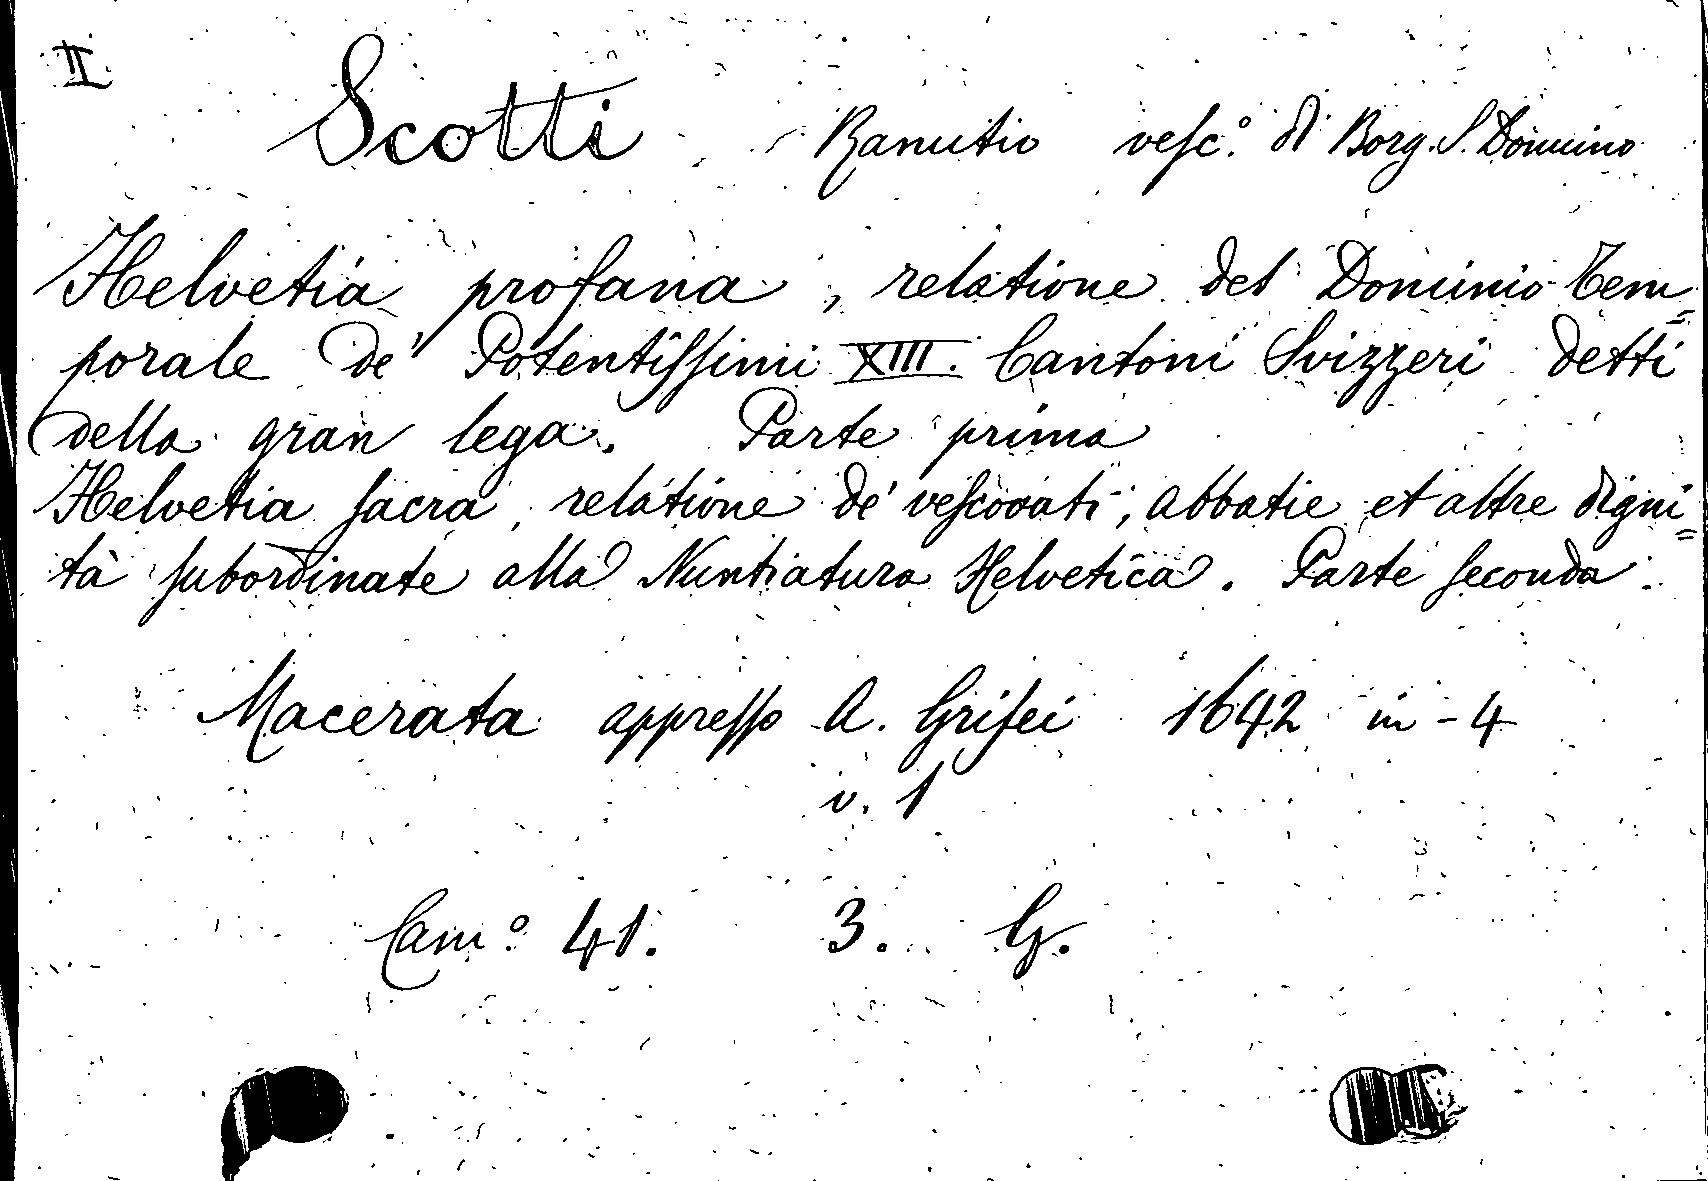 II
Scotti Ranutio vesc.º di Borg. S. Domino
Helvetia profana, relatione del Dominio Tem=
porale de' Potentissimi XIII. Cantoni Svizzeri detti
della gran lega. Parte prima
Helvetia sacra, relatione de' vescovati, abbatie et altre digni=
tà subordinate alla Nuntiatura Helvetica. Parte seconda
Macerata appresso A. Grisei 1642 in-4
v. 1
Cam.º 41. 3. G.